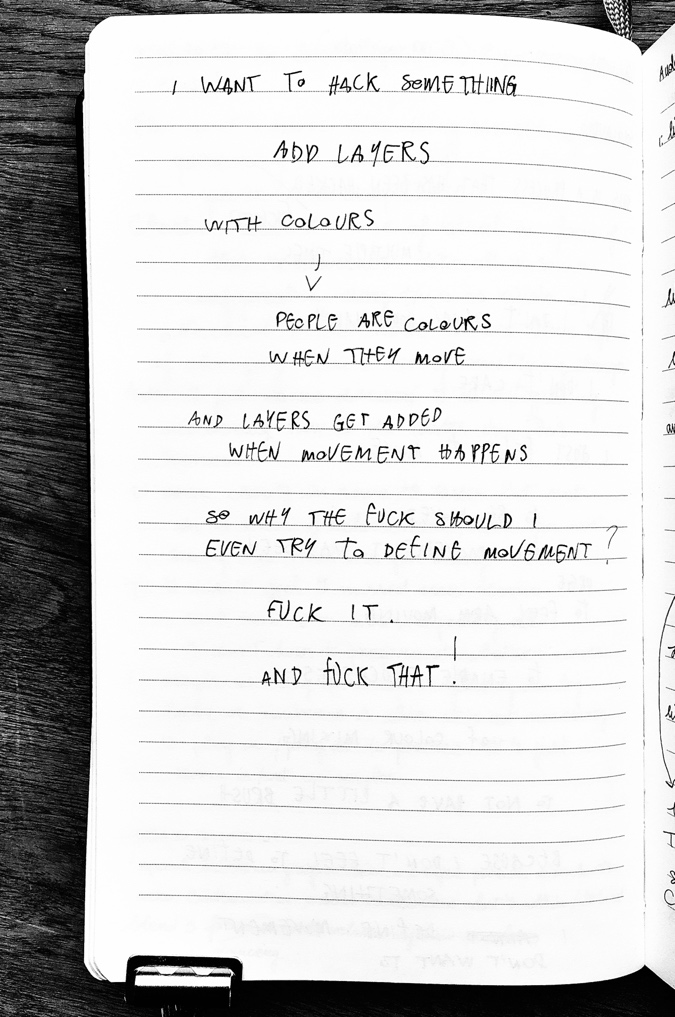 I WANT TO HACK SOMETHING
ADD LAYERS
WITH COLOURS
PEOPLE ARE COLOURS
WHEN THEY MOVE
AND LAYERS GET ADDED
WHEN MOVEMENT HAPPENS
SO WHY THE FUCK SHOULD I
EVEN TRY TO DEFINE MOVEMENT?
FUCK IT.
AND FUCK THAT!